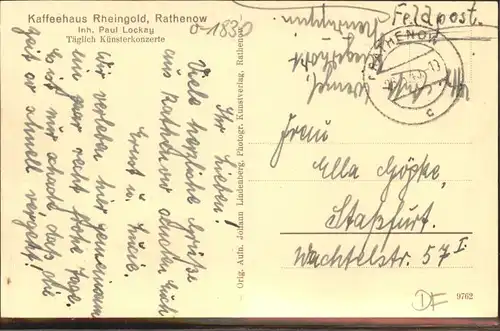 Kaffeehaus Rheingold, Rathenow
Inh. Paul Lockay
Täglich Künsterkonzerte
0-1830
Ihr Lieben!
Viele herzliche Grüße
aus Rathenow senden Euch
Ernst u. Lucie.
Wir verleben hier gemeinsam
ein paar recht frohe Tage.
Es ist nur schade, daß die
Zeit so schnell vergeht!
Orig. Aufn. Johann Lindenberg, Photogr. Kunstverlag, Rathenow
Feldpost.
RATHENOW
c
Frau
Ella Göpke,
Staßfurt.
Wachtelstr. 57 I
DF
9762